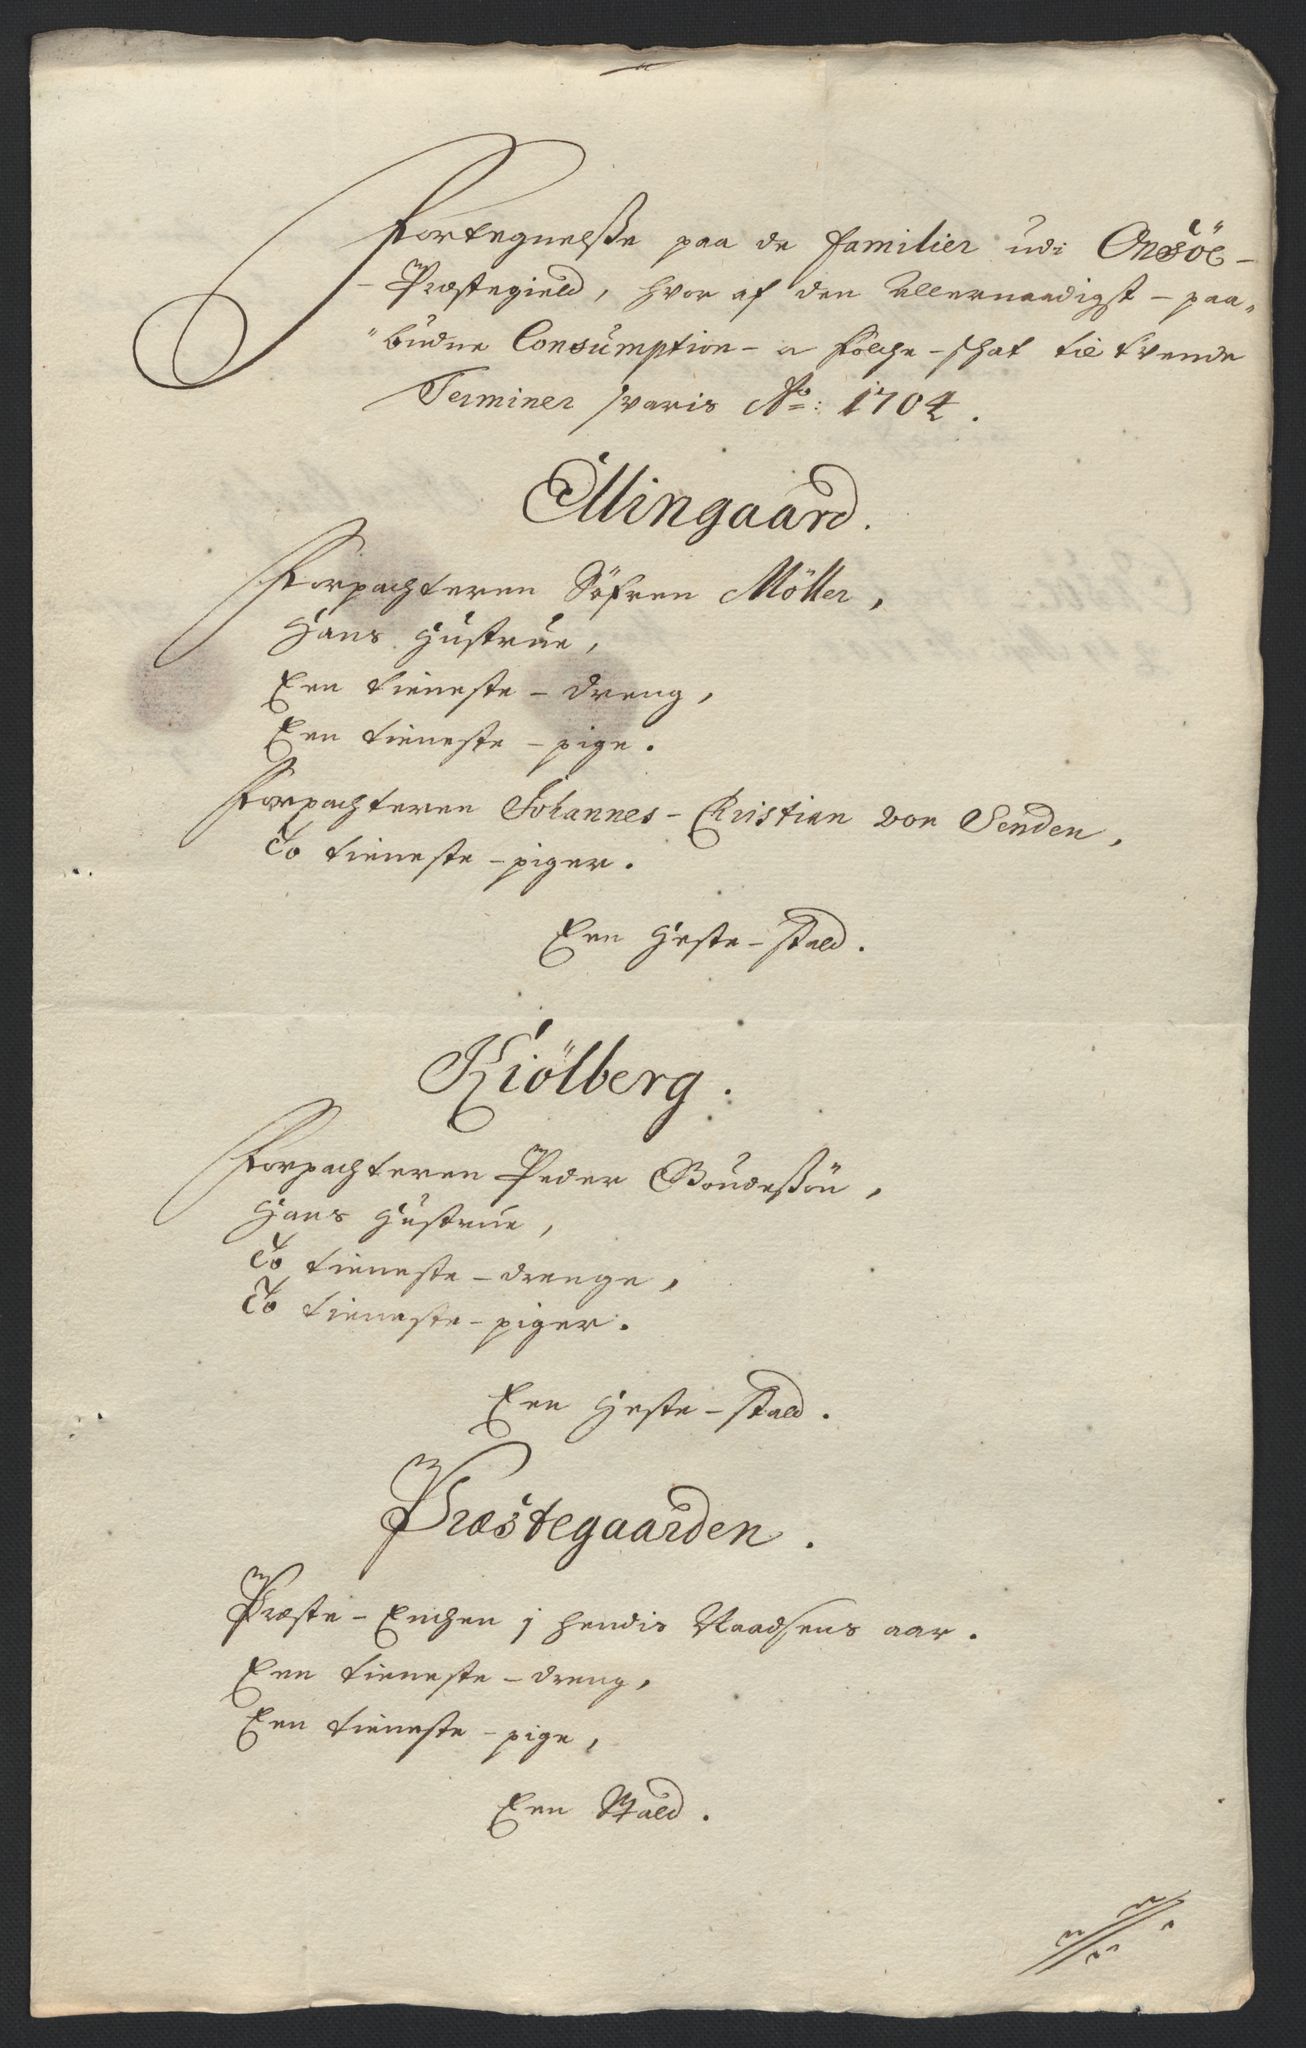 Fortegnelsse paa de familier udi Onsöe-
- Præstegield, hvor af den Allernaadigst - paa„
"budne Consumption - a folche-schat til tvende
Terminer svaris Ao: 1704.
Ellingaard.
Forpachteren Söfren Möller,
Hans Hustrue,
Een tieneste - dreng,
Een tieneste - pige.
Forpachteren Johannes - Christian von Senden,
To tieneste - piger.
Een Heste - stald.
Kiölberg.
Forpachteren Peder Boudessön,
Hans Hustrue,
To tieneste - drenge,
To tieneste - piger.
Een Heste - stald.
Præstegaarden.
Præste - Enchen j hendis Naadsens aar.
Een tieneste - dreng,
Een tieneste - pige,
Een Stald.